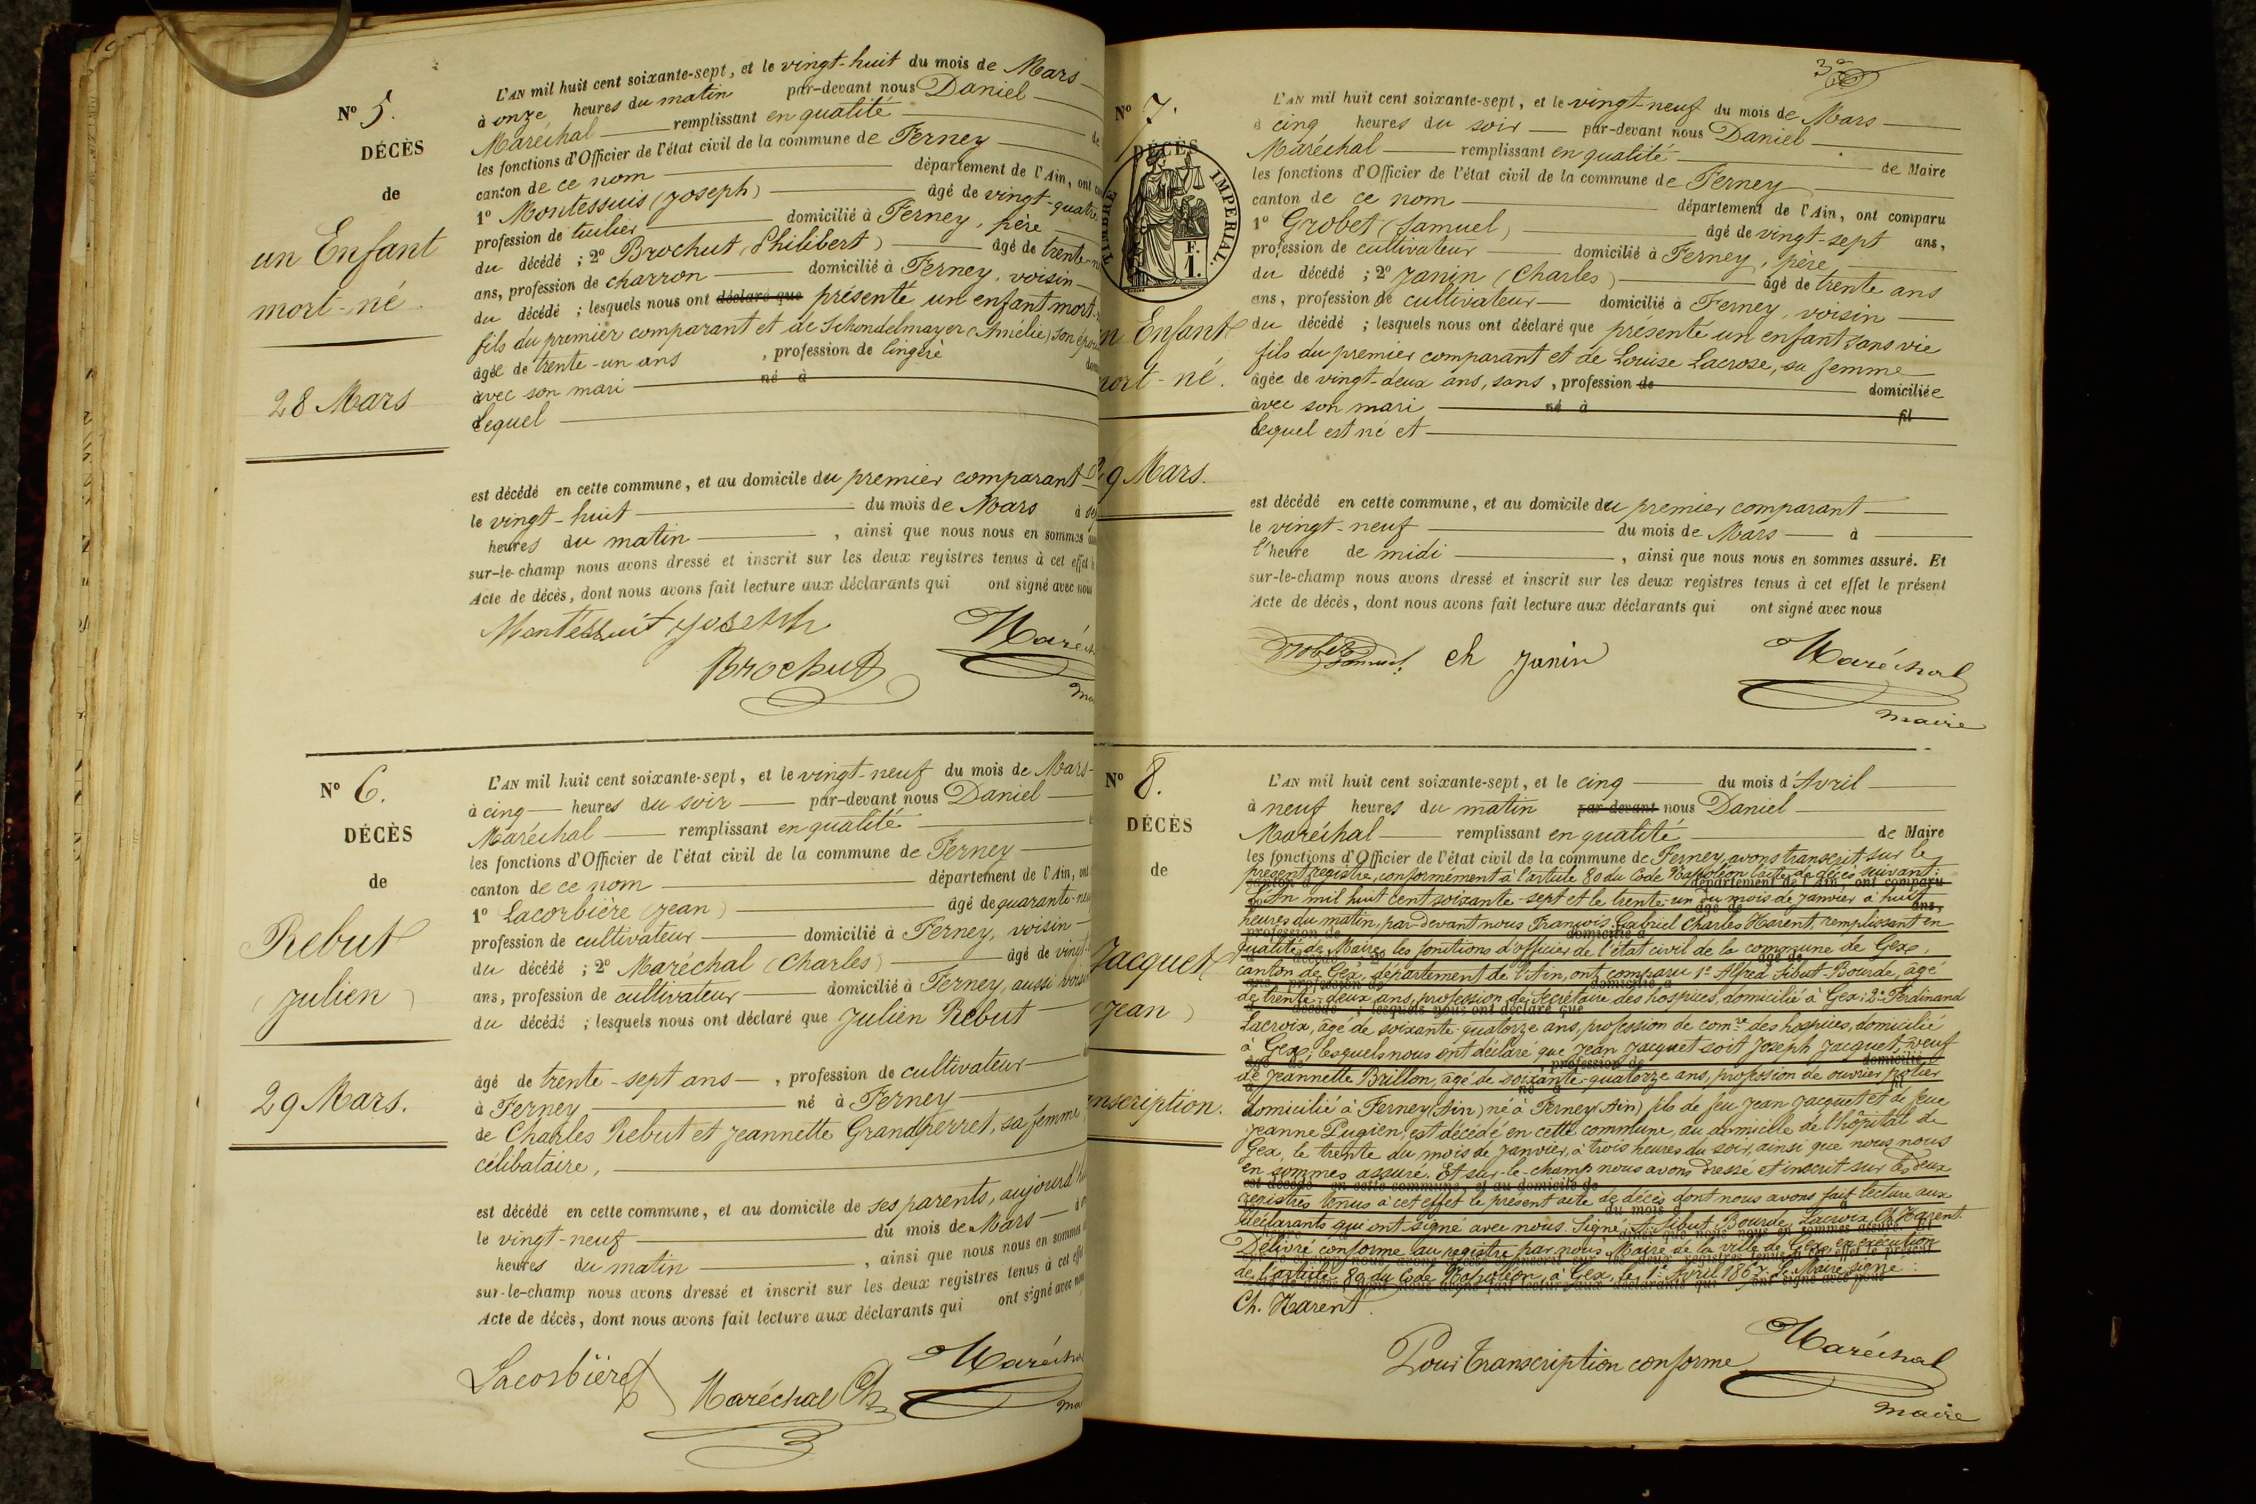 N° 5.
DÉCÈS
de
un Enfant
mort-né.
28 Mars
L'AN mil huit cent soixante-sept, et le vingt-huit du mois de Mars
à onze heures du matin par-devant nous Daniel
Maréchal remplissant en qualité de
les fonctions d'Officier de l'état civil de la commune de Ferney
canton de ce nom département de l'Ain, ont
1° Montessuis (Joseph) âgé de vingt-quatre
profession de tuilier domicilié à Ferney, père
du décédé ; 2° Brochut (Philibert) âgé de trente-
ans, profession de charron domicilié à Ferney, voisin
du décédé ; lesquels nous ont déclaré que présenté un enfant mort-
fils du premier comparant et de Schondelmayer (Amélie) son
âgée de trente-un ans , profession de lingère
avec son mari né à
lequel
est décédé en cette commune, et au domicile du premier comparant
le vingt-huit du mois de Mars à
heures du matin , ainsi que nous nous en sommes
sur-le-champ nous avons dressé et inscrit sur les deux registres tenus à cet effet
Acte de décès, dont nous avons fait lecture aux déclarants qui ont signé avec nous
Montessuit Joseph
Brochut
N° 6.
DÉCÈS
de
Rebut
(Julien)
29 Mars.
L'AN mil huit cent soixante-sept, et le vingt-neuf du mois de Mars
à cinq heures du soir par-devant nous Daniel
Maréchal remplissant en qualité
les fonctions d'Officier de l'état civil de la commune de Ferney
canton de ce nom département de l'Ain, ont
1° Lacorbière (Jean) âgé de quarante-
profession de cultivateur domicilié à Ferney, voisin
du décédé ; 2° Maréchal (Charles) âgé de vingt-
ans, profession de cultivateur domicilié à Ferney, aussi voisin
du décédé ; lesquels nous ont déclaré que Julien Rebut
âgé de trente-sept ans , profession de cultivateur
à Ferney né à Ferney
de Charles Rebut et Jeannette Grandperret, sa femme
célibataire,
est décédé en cette commune, et au domicile de ses parents,
le vingt-neuf du mois de Mars
heures du matin , ainsi que nous nous en sommes
sur-le-champ nous avons dressé et inscrit sur les deux registres tenus à cet effet
Acte de décès, dont nous avons fait lecture aux déclarants qui ont signé avec
Lacorbière
Maréchal Ch
N° 7.
DÉCÈS
TIMBRE IMPERIAL.
F.
1.
Enfant
mort-né.
29 Mars.
L'AN mil huit cent soixante-sept, et le vingt-neuf du mois de Mars
à cinq heures du soir par-devant nous Daniel
Maréchal remplissant en qualité de Maire
les fonctions d'Officier de l'état civil de la commune de Ferney
canton de ce nom département de l'Ain, ont comparu
1° Grobet (Samuel) âgé de vingt-sept ans,
profession de cultivateur domicilié à Ferney, père
du décédé ; 2° Janin (Charles) âgé de trente ans
ans, profession de cultivateur domicilié à Ferney, voisin
du décédé ; lesquels nous ont déclaré que présenté un enfant sans vie
fils du premier comparant et de Louise Lacrose, sa femme
âgée de vingt-deux ans, sans , profession de domiciliée
avec son mari né à fil
lequel est né et
est décédé en cette commune, et au domicile du premier comparant
le vingt-neuf du mois de Mars à
l'heure de midi , ainsi que nous nous en sommes assuré. Et
sur-le-champ nous avons dressé et inscrit sur les deux registres tenus à cet effet le présent
Acte de décès, dont nous avons fait lecture aux déclarants qui ont signé avec nous
Grobet Samuel. Ch Janin Maréchal
maire
N° 8.
DÉCÈS
de
Jacquet
(Jean)
L'AN mil huit cent soixante-sept, et le cinq du mois d'Avril
à neuf heures du matin par-devant nous Daniel
Maréchal remplissant en qualité de Maire
les fonctions d'Officier de l'état civil de la commune de Ferney, avons transcrit sur le
présent registre, conformément à l'article 80 du Code Napoléon l'acte de décès suivant:
L'An mil huit cent soixante-sept et le trente-un du mois de Janvier à huit
heures du matin, par-devant nous François Gabriel Charles Harent, remplissant en
qualité de Maire, les fonctions d'officier de l'état civil de la commune de Gex,
canton de Gex, département de l'Ain, ont comparu 1° Alfred Sibut-Bourde, âgé
de trente-deux ans, profession de Secrétaire des hospices, domicilié à Gex; 2° Ferdinand
Lacroix, âgé de soixante-quatorze ans, profession de com.re des hospices, domicilié
à Gex; lesquels nous ont déclaré que Jean Jacquet soit Joseph Jacquet, veuf
de Jeannette Brillon, âgé de soixante-quatorze ans, profession de ouvrier potier
domicilié à Ferney (Ain) né à Ferney (Ain) fils de feu Jean Jacquet et de feue
Jeanne Pugien, est décédé en cette commune, au domicile de l'hôpital de
Gex, le trente du mois de Janvier, à trois heures du soir, ainsi que nous nous
en sommes assuré. Et sur-le-champ nous avons dressé et inscrit sur les deux
registres tenus à cet effet le présent acte de décès dont nous avons fait lecture aux
déclarants qui ont signé avec nous. Signé: A. Sibut Bourde, Lacroix, Ch Harent.
Délivré conforme au registre par nous Maire de la ville de Gex, en exécution
de l'article 80 du Code Napoléon, à Gex, le 1er Avril 1867. Le Maire signé:
Ch. Harent.
Pour transcription conforme Maréchal
maire